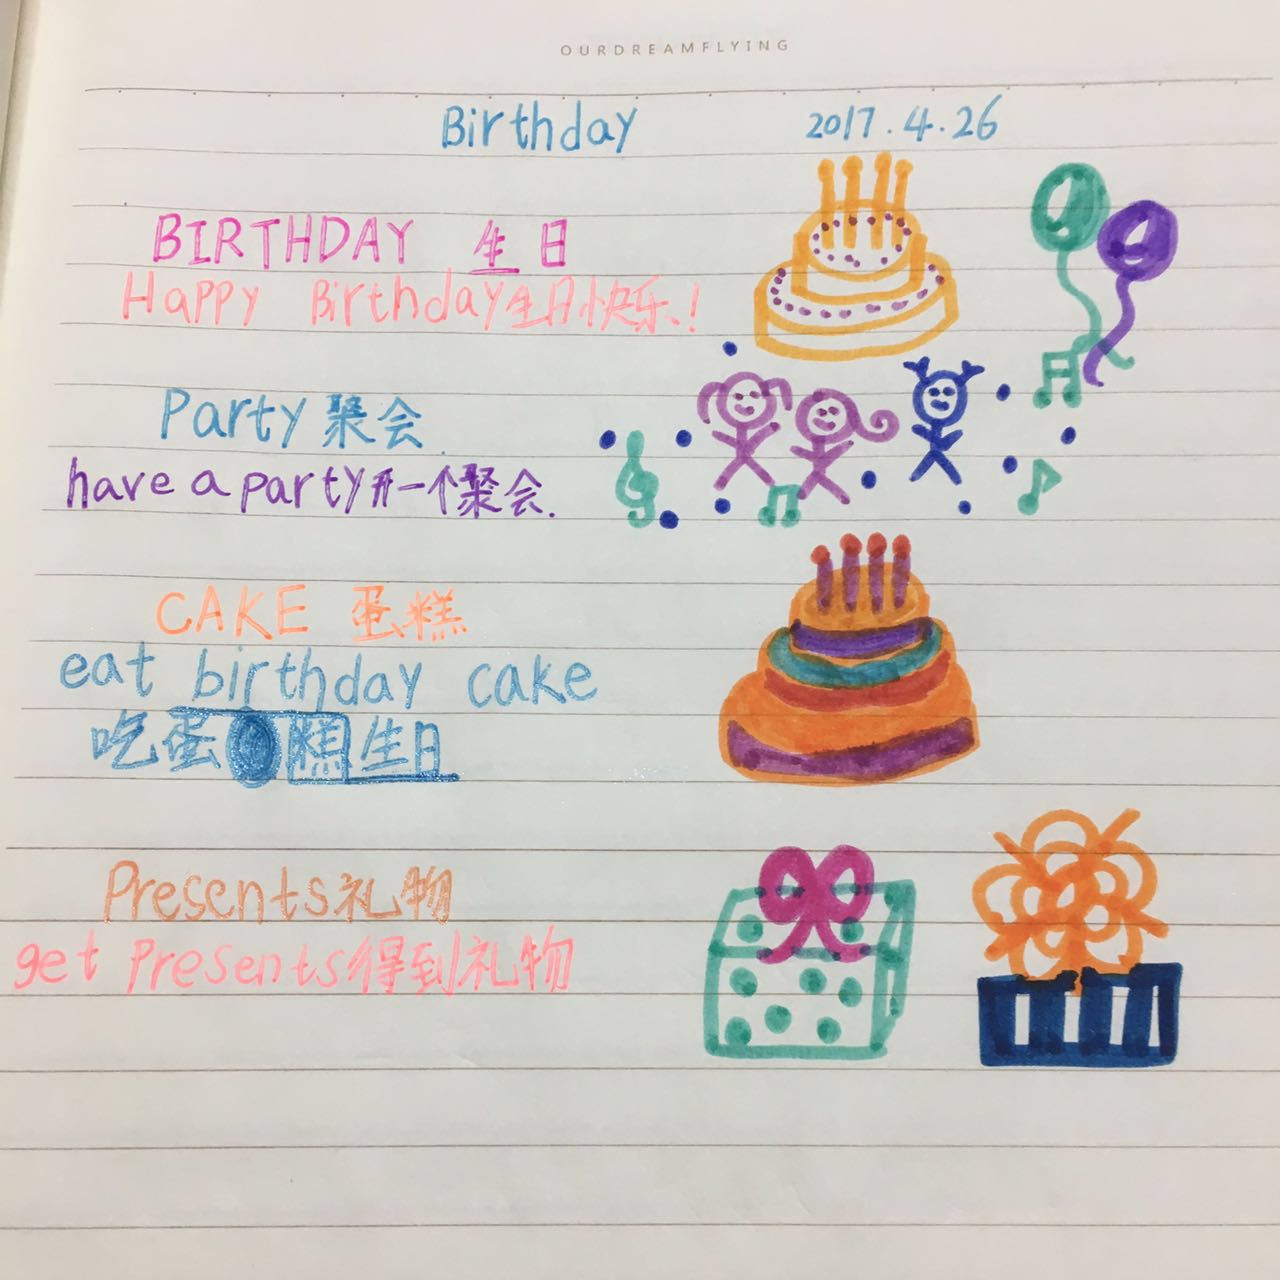 OURDREAMFLYING
Birthday 2017.4.26
BIRTHDAY 生日
Happy Birthday生日快乐!
Party 聚会
have a party开一个聚会.
CAKE 蛋糕
eat birthday cake
吃蛋糕生日
Presents礼物
get Presents得到礼物